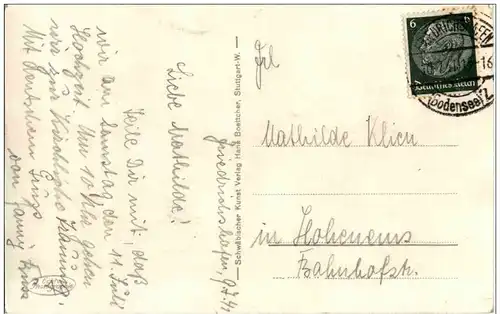 Friedrichshafen, 9.7.42
Liebe Mathilde!
Teile Dir mit, daß
wir am Samstag, den 11. Juli
Hochzeit. Um 10 Uhr gehen
wir zur Kirchliche Trauung.
Mit Deutschem Gruß
von Fanny
— Schwäbischer Kunst Verlag Hans Boettcher, Stuttgart-W. —
Frl
Mathilde Klien
in Hohenems
Bahnhofstr.
6
6
Deutsches Reich
FRIEDRICHSHAFEN
(Bodensee) 2